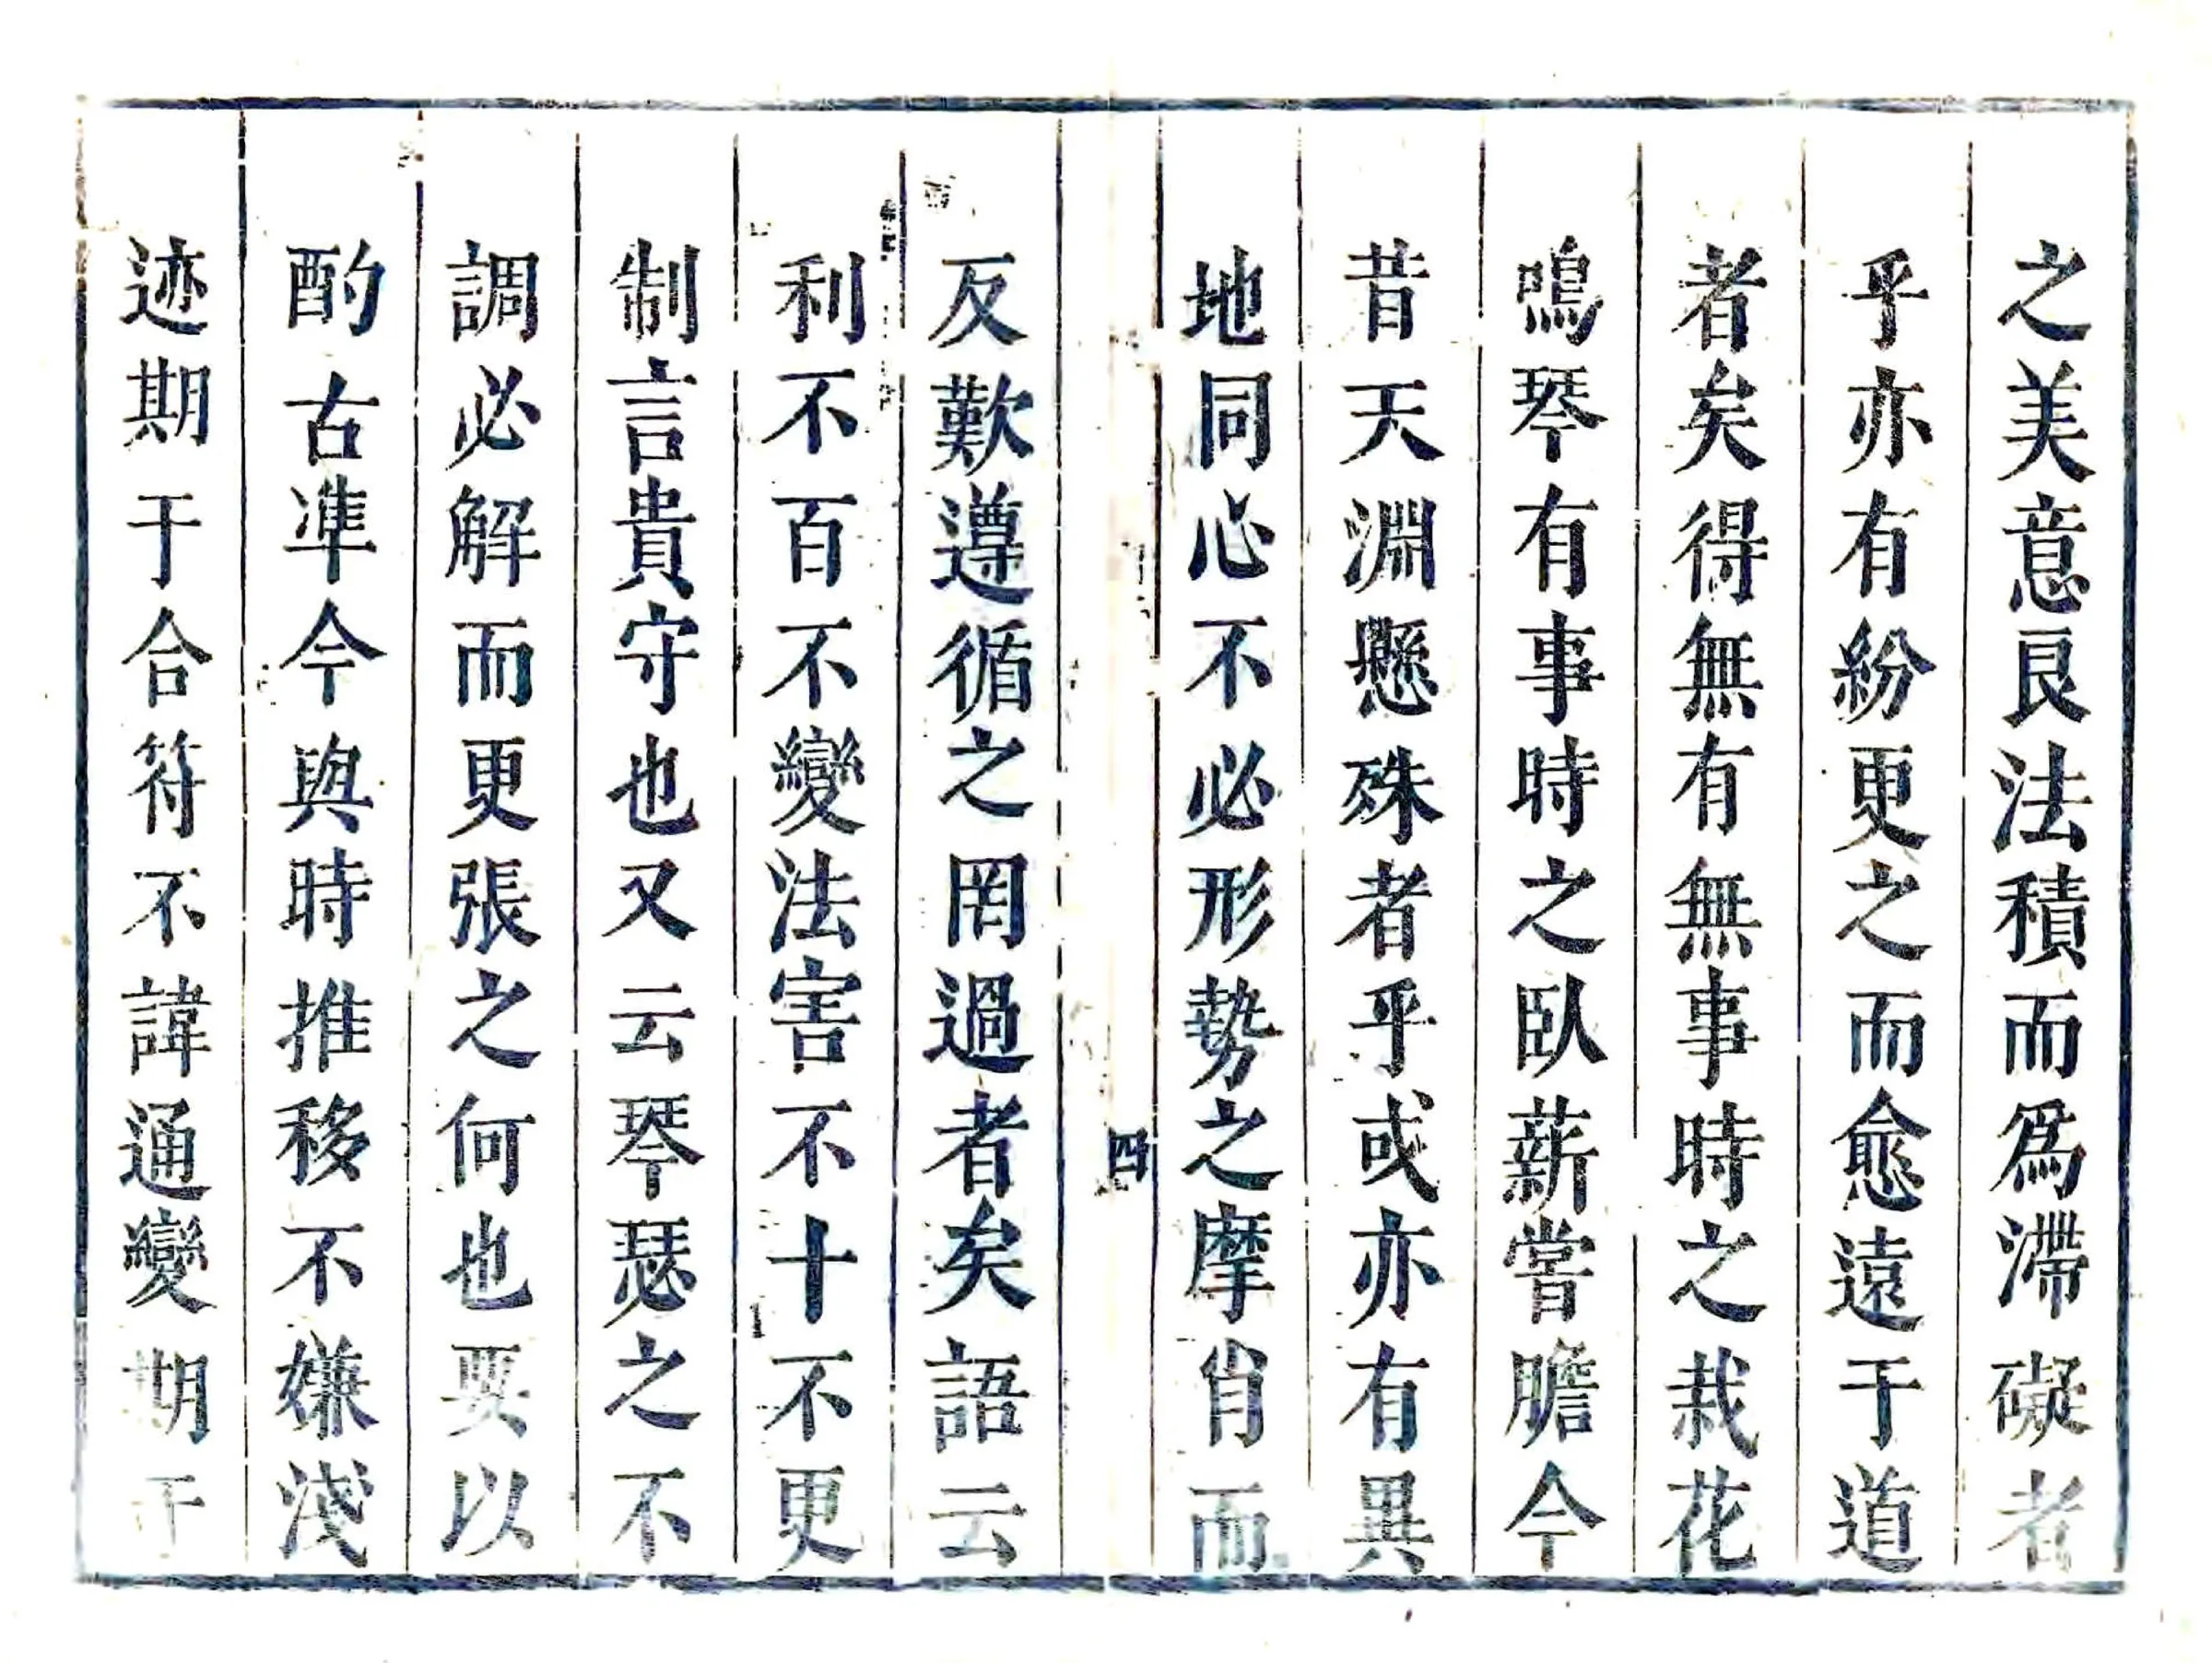 之美意良法積而爲滯礙者
乎亦有紛更之而愈遠于道
者矣得無有無事時之栽花
鳴琴有事時之臥薪嘗膽今
昔天淵懸殊者乎或亦有異
地同心不必形勢之摩肖而
四
反歎遵循之罔過者矣語云
利不百不變法害不十不更
制言貴守也又云琴瑟之不
調必解而更張之何也要以
酌古準今與時推移不嫌淺
迹期于合符不諱通變期于